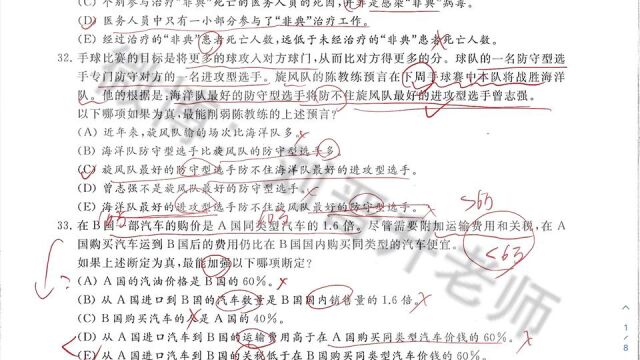 (C) 个别参与治疗"非典"死亡的医务人员的死因，并非是感染"非典"病毒。
(D) 医务人员中只有一小部分参与了"非典"治疗工作。
(E) 经过治疗的"非典"患者死亡人数，远低于未经治疗的"非典"患者死亡人数。
32. 手球比赛的目标是将更多的球攻入对方球门，从而比对方得更多的分。球队的一名防守型选
手专门防守对方的一名进攻型选手。旋风队的陈教练预言在下周手球赛中本队将战胜海洋
队。他的根据是：海洋队最好的防守型选手将防不住旋风队最好的进攻型选手曾志强。
以下哪项如果为真，最能削弱陈教练的上述预言？
(A) 近年来，旋风队输的场次比海洋队多。
(B) 海洋队防守型选手比旋风队的防守型选手多。
(C) 旋风队最好的防守型选手防不住海洋队最好的进攻型选手。
(D) 曾志强不是旋风队最好的防守型选手。
(E) 海洋队最好的进攻型选手防不住旋风队最好的防守型选手。
33. 在B国一部汽车的购价是A国同类型汽车的1.6倍。尽管需要附加运输费用和关税，在A
国购买汽车运到B国后的费用仍比在B国国内购买同类型的汽车便宜。
如果上述断定为真，最能加强以下哪项断定？
(A) A国的汽油价格是B国的60%。
(B) 从A国进口到B国的汽车数量是B国国内销售量的1.6倍。
(C) B国购买汽车的人是A国的40%。
(D) 从A国进口汽车到B国的运输费用高于在A国购买同类型汽车价钱的60%。
(E) 从A国进口汽车到B国的关税低于在B国购买同类型汽车价钱的60%。
<63
<63
1/8